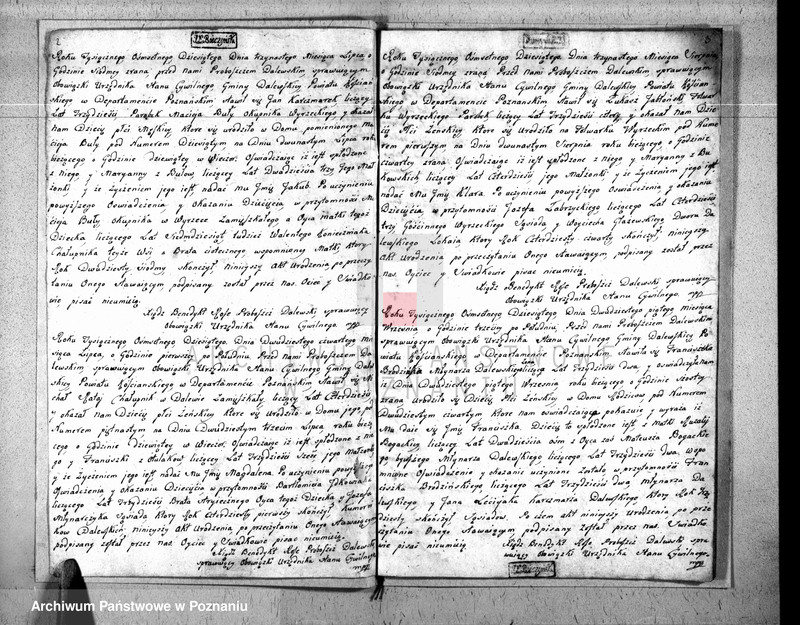 2
Roku Tysiącznego Ośmsetnego Dziesiątego Dnia trzynastego Miesiąca Lipca o
Godzinie siódmej zrana przed nami Proboszczem Dalewskim sprawuiącym
Obowiązki Urzędnika Stanu Cywilnego Gminy Dalewskiey Powiatu Kościań
skiego w Departamencie Poznańskim stawił się Jan Karczmarek liczący
Lat Trzydzieści Parobek Macieja Buły Okupnika Wyrzeckiego y okazał
nam Dziecię płci Męskiey, które się urodziło w Domu pomienionego Ma
cieja Buły pod Numerem Dziewiątym na Dniu dwunastym Lipca roku
bieżącego o Godzinie dziewiątey w Wieczór. Oświadczaiąc iż iest spłodzone
z niego y Maryanny z Bułow liczącey Lat Dwadzieścia trzy Jego Mał
żonki y że Życzeniem jego iest nadać mu Jmię Jakub. Po uczynieniu
powyższego Oświadczenia y okazaniu Dziecięcia w przytomności Ma
cieja Buły okupnika w Wyrzece Zamięszkałego a Oyca matki tegoż
Dziecka liczącego Lat Siedmdziesiąt tudzież Walentego
Chałupnika teyże Wsi a Brata ciotecznego wspomnianey Matki, który
Rok Dwudziesty siódmy skończył. Ninieyszy Akt Urodzenia po przeczy
taniu Onego Stawaiącym podpisany został przez nas Ociec y Świadko
wie pisać nieumieią.
Xiądz Benedykt Proboszcz Dalewski sprawuiący
Obowiązki Urzędnika Stanu Cywilnego mpp
Roku Tysiącznego Ośmsetnego Dziesiątego, Dnia Dwudziestego czwartego Mie
siąca Lipca, o Godzinie pierwszey po Południu, Przed nami Proboszczem Da
lewskim sprawuiącym Obowiązki Urzędnika Stanu Cywilnego Gminy Dale
wskiey Powiatu Kościanskiego w Departamencie Poznańskim Stawił się Mi
chał Chałupnik w Dalewie Zamięszkały liczący Lat
y okazał nam Dziecię płci Żeńskiey które się urodziło w Domu pod
Numerem piętnastym na Dniu Dwudziestym trzecim Lipca roku bieżą
cego o Godzinie dziewiątey w Wieczór Oświadczaiąc iż iest spłodzone z nie
go y Franciszki z liczącey Lat Trzydzieści Sześć jego Małżonki
y że Życzeniem jego iest nadać Mu Jmię Magdalena. Po uczynieniu powyższego
Oświadczenia y okazaniu Dziecięcia w przytomności Bartłomieja
liczącego Lat Trzydzieści Brata Stryiecznego Oyca tegoż Dziecka y Józefa
Młynarczyka Sąsiada który Rok Czterdziesty pierwszy skończył
Dalewskich ninieyszy Akt Urodzenia po przeczytaniu Onego Stawaiącym
podpisany został przez nas Oyciec y Świadkowie pisać nieumieią.
Xiądz Benedykt Proboszcz Dalewski
sprawuiący Obowiązki Urzędnika Stanu Cywilnego
mpp
3
Roku Tysiącznego Ośmsetnego Dziesiątego Dnia trzynastego Miesiąca Sierpnia
o Godzinie Siódmey zrana Przed Nami Proboszczem Dalewskim sprawuiącym
Obowiązki Urzędnika Stanu Cywilnego Gminy Dalewskiey Powiatu Kościań
skiego w Departamencie Poznańskim stawił się Łukasz Jabłoński Folwar
ku Wyrzeckiego Parobek liczący Lat Trzydzieści cztery y okazał nam Dzie
cię Płci Żeńskiey które się Urodziło na Folwarku Wyrzeckim pod Nume
rem pierwszym na Dniu dwunastym Sierpnia roku bieżącego o godzinie
czwartey zrana Oświadczaiąc iż iest spłodzone z niego y Maryanny z Ba
kowskich liczącey Lat Czterdzieści jego Małżonki y że Życzeniem jego iest
nadać Mu Jmię Klara. Po uczynieniu powyższego Oświadczenia y okazaniu
Dziecięcia w przytomności Jozefa Zabrzyckiego liczącego Lat Czterdzieści
trzy Gościnnego Wyrzeckiego Sąsiada y Woyciecha Głazewskiego Dworu Da
lewskiego Lokaia który Rok Czterdziesty czwarty skończył, ninieyszy
Akt Urodzenia po przeczytaniu Onego Stawaiącym podpisany został przez
nas. Oyciec y Świadkowie pisać nieumieią.
Xiądz Benedykt Proboszcz Dalewski sprawuiący
Obowiązki Urzędnika Stanu Cywilnego mpp
Roku Tysiącznego Ośmsetnego Dziesiątego Dnia Dwudziestego piątego Miesiąca
Września o Godzinie trzeciey po Południu, Przed Nami Proboszczem Dalewskim
sprawuiącym Obowiązki Urzędnika Stanu Cywilnego Gminy Dalewskiey Po
wiatu Kościanskiego w Departamencie Poznańskim Stawiła się Franciszka
Brodzińska Młynarza Dalewskiego żona licząca Lat Trzydzieści dwa, y oświadczyła nam
iż Dnia Dwudziestego piątego Września roku bieżącego o Godzinie Szóstey
zrana Urodziło się Dziecię Płci Żeńskiey w Domu pod Numerem
Dwudziestym czwartym które nam oświadczaiąca pokazuie y wyraża iż
Mu daie się Jmię Franciszka. Dziecię to spłodzone iest z Matki
Bogackiey liczącey Lat Dwadzieścia ośm z Oyca zaś Mateusza Bogackie
go byłego Młynarza Dalewskiego liczącego Lat Trzydzieści dwa. Wspo
mnione Oświadczenie y okazanie uczynione zostało w przytomności Fran
ciszka Brodzińskiego liczącego Lat Trzydzieści dwa Młynarza Da
lewskiego y Jana Karczmarza Dalewskiego który Rok Trzy
dziesty skończył Sąsiadow. Po czem akt ninieyszy Urodzenia po prze
czytaniu Onego Stawaiącym podpisany został przez nas. Świadko
wie pisać nieumieią. Xiądz Benedykt Proboszcz Dalewski spra
wuiący Obowiązki Urzędnika Stanu Cywilnego
mpp
Archiwum Państwowe w Poznaniu